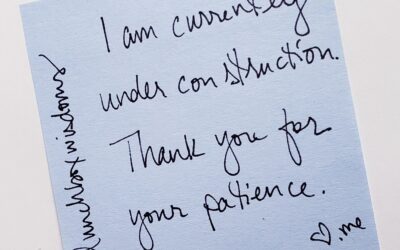 I am currently
under construction.
Thank you for
your patience.
♡ me
lunchboxwisdoms